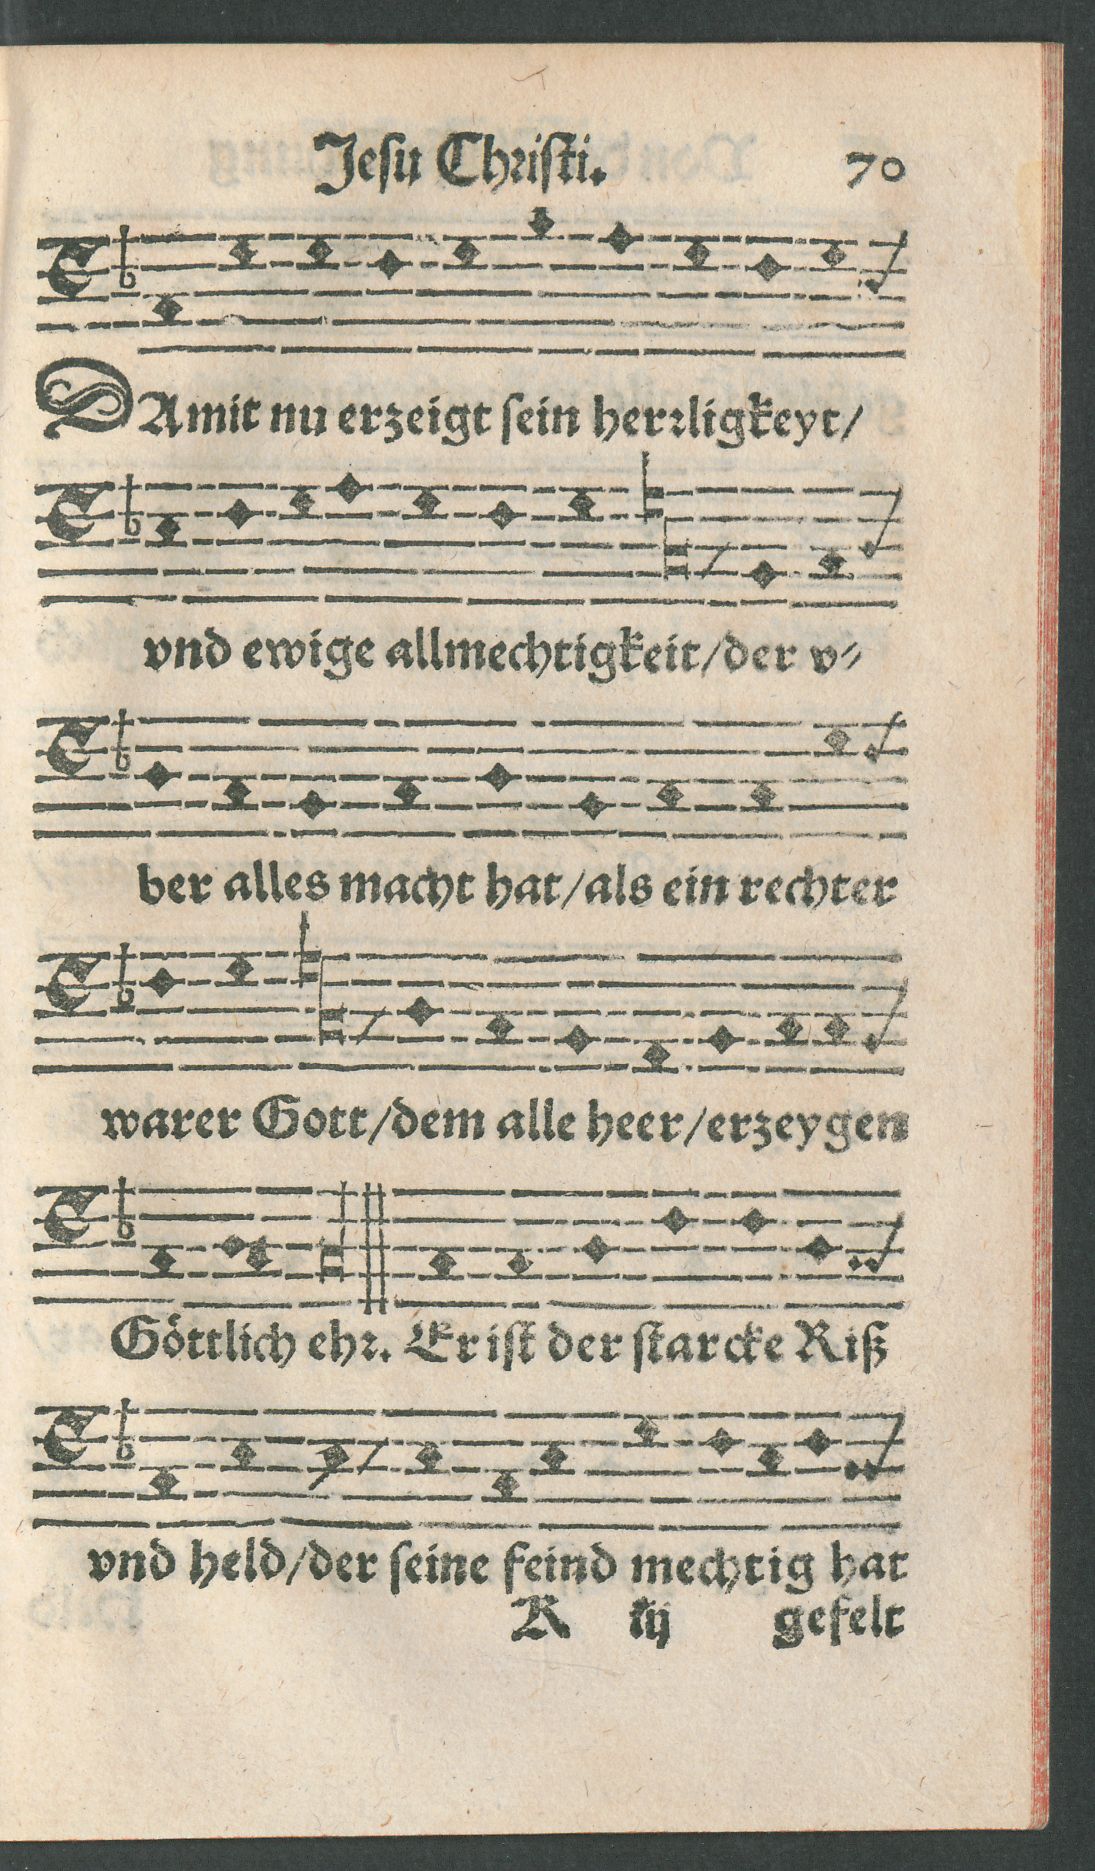 Jesu Christi. 70
DAmit nu erzeigt sein herrligkeyt/
vnd ewige allmechtigkeit/der v⸗
ber alles macht hat/als ein rechter
warer Gott/dem alle heer/erzeygen
Göttlich ehr. Er ist der starcke Riß
vnd held/der seine feind mechtig hat
K iij gefelt